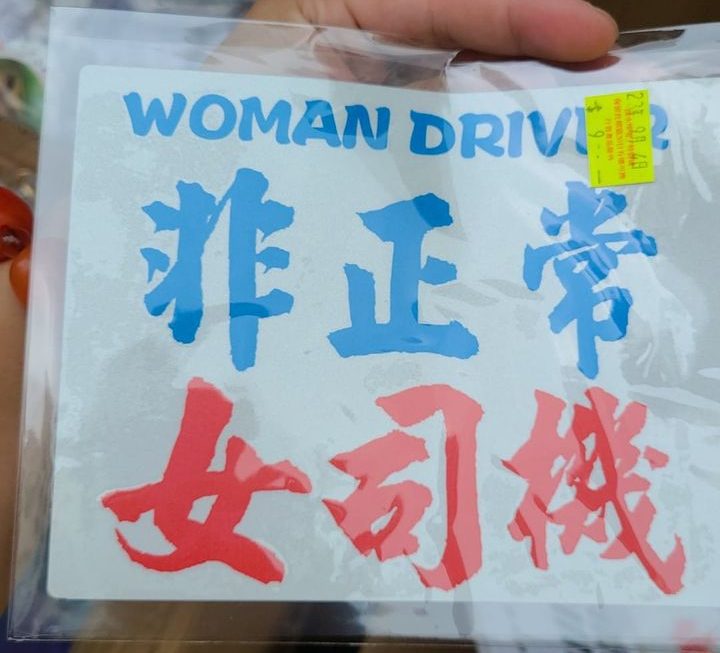 WOMAN DRIVER
非正常
女司機
$ 9.-